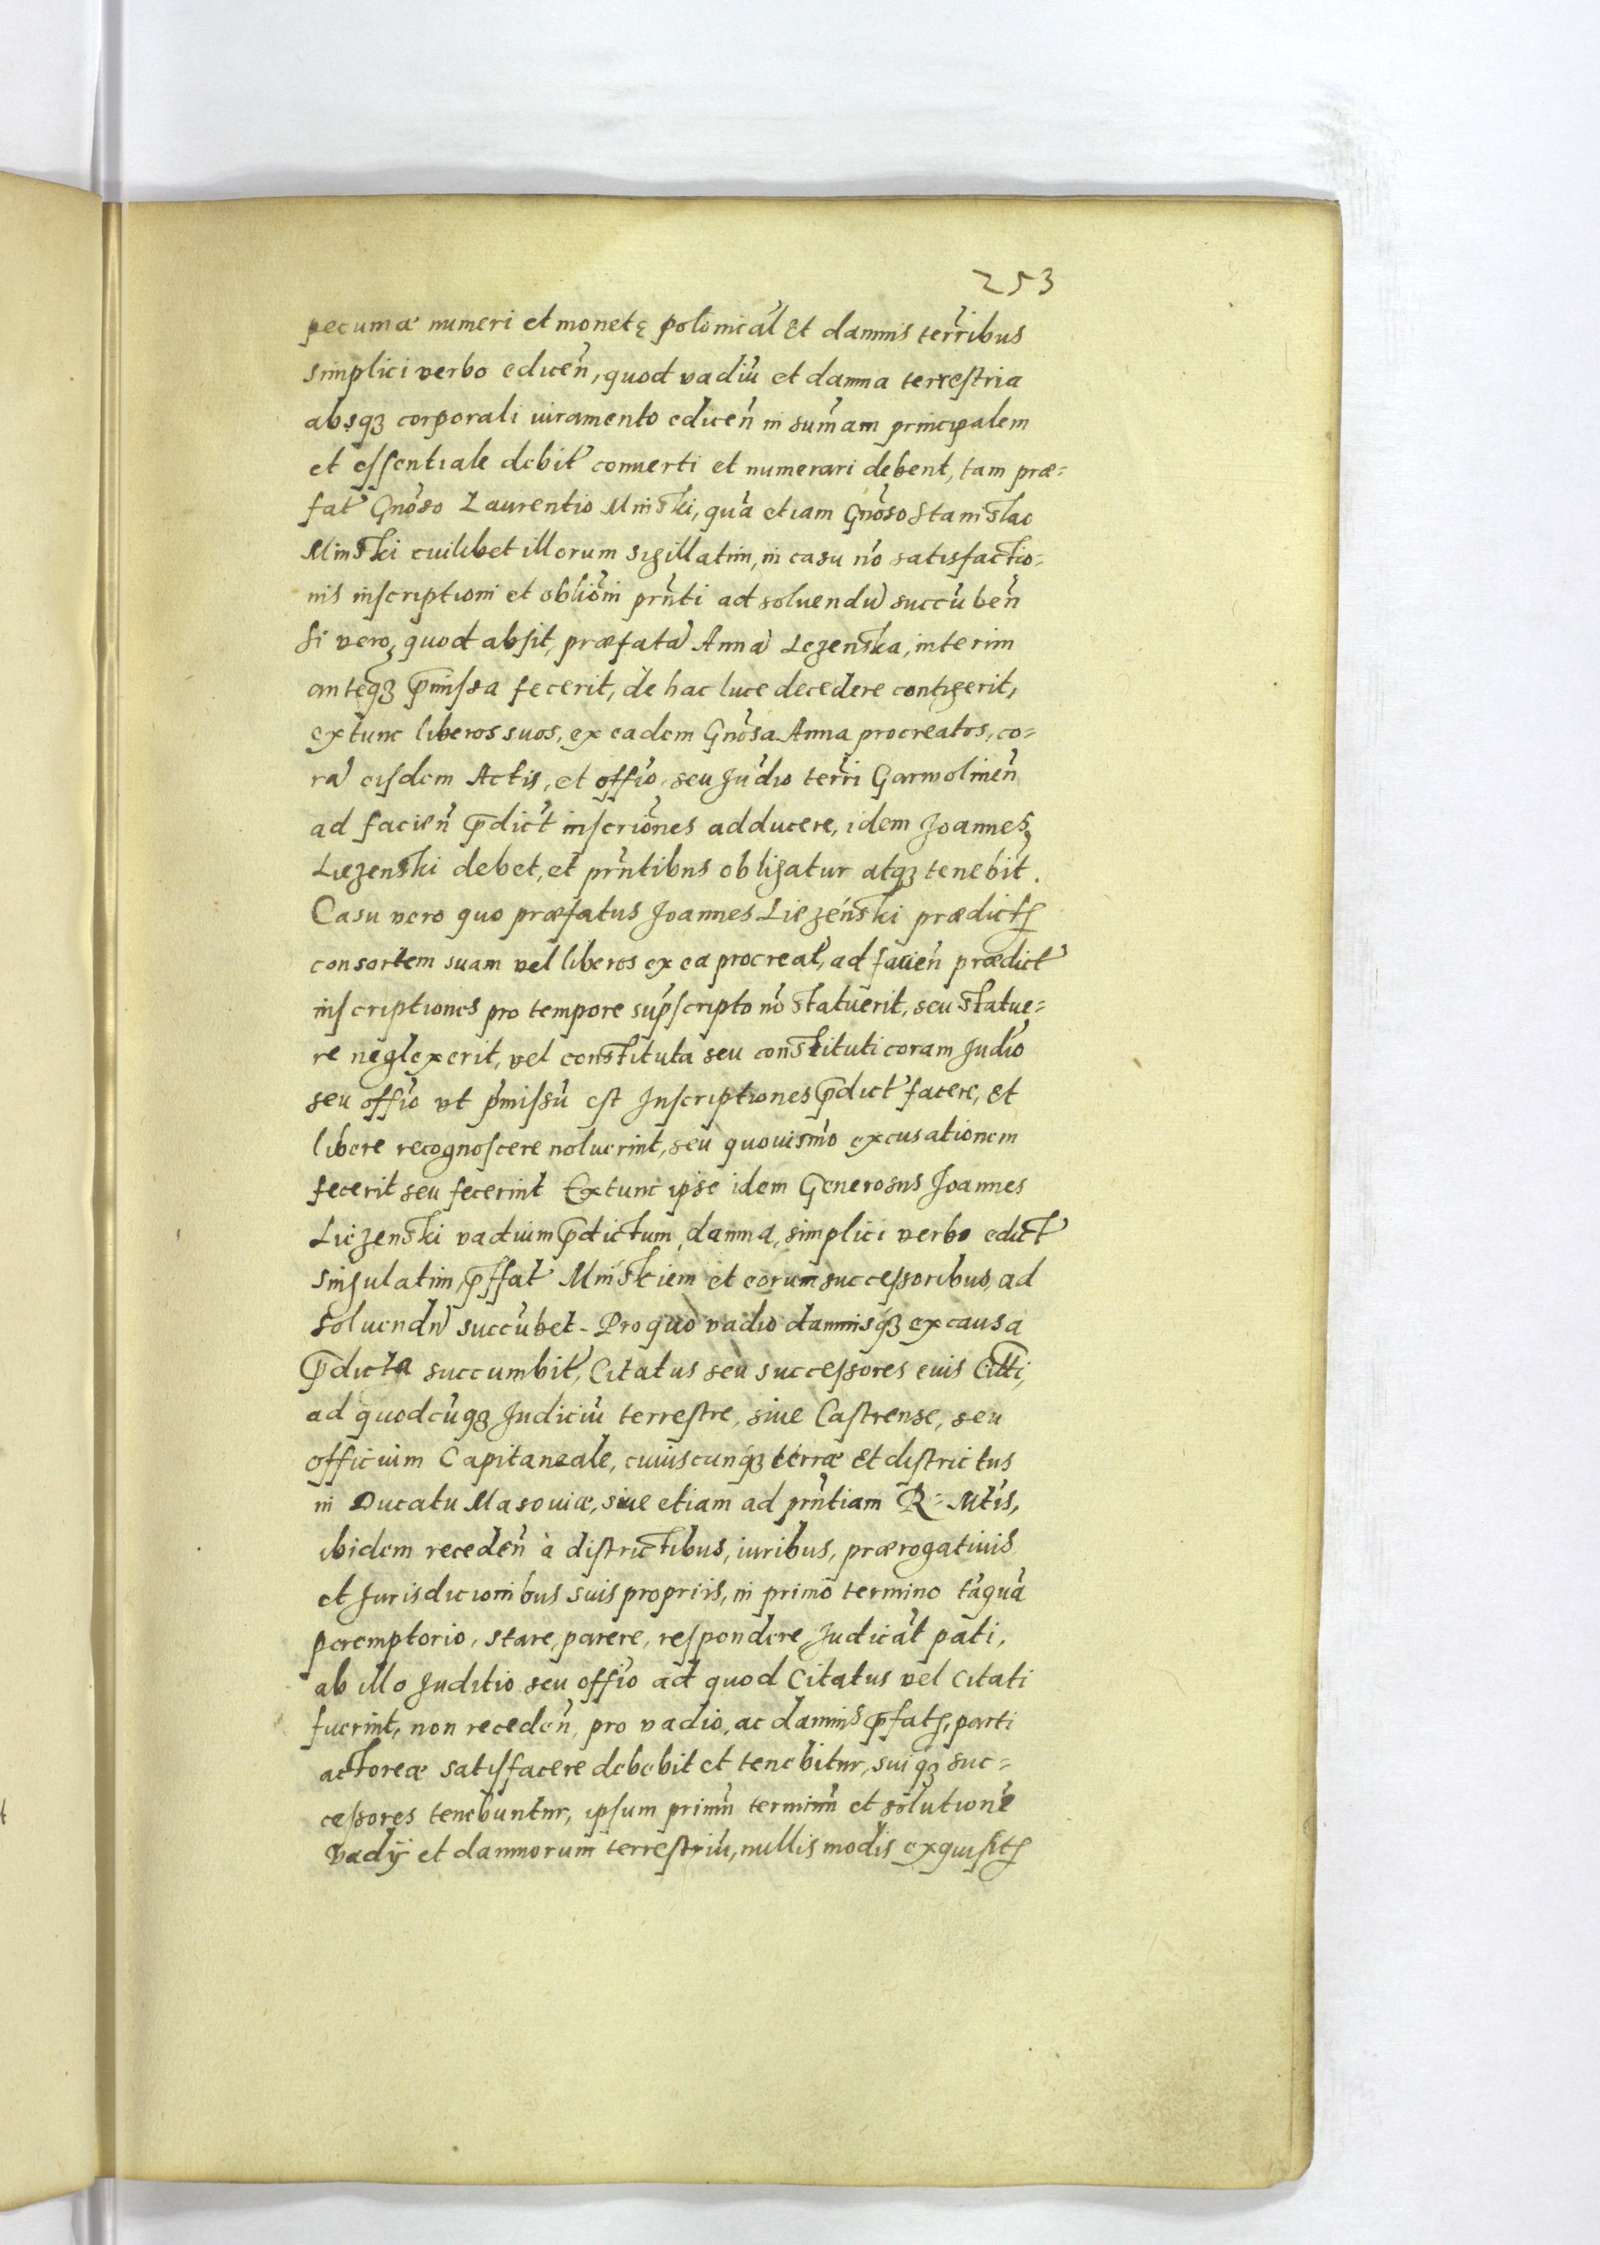 253
pecuniæ numeri et monetę polonical̃ Et damnis terr̃ibus
simplici verbo edicen̄, quod vadiū et damna terrestria
absqȝ corporali iuramento edicen̄ in sum̄am principalem
et essentiale debit̃ conuerti et numerari debent, tam præ=
fat̃ Gn̄oso Laurentio Minski, quā etiam Gn̄oso Stanislao
Minski cuilibet illorum sigillatim, in casu nō satisfactio=
nis inscriptioni et obliōni prn̄ti ad soluendū succūben̄
Si vero, quod absit, præfatā Annā Lezenska, interim
anteqȝ p̄missa fecerit, de hac luce decedere contigerit,
extunc liberos suos, ex eadem Gn̄osa Anna procreatos, co=
rā eisdem Actis, et off̄io, seu Jud̄io terr̄i Garwolinen̄
ad facien̄ p̄dict̄ inscriōnes adducere, idem Joannes
Liezenski debet, et prn̄tibus obligatur atqȝ tenebit̃.
Casu vero quo præfatus Joannes Liezénski prædictę
consortem suam vel liberos ex ea procreat̃, ad facien̄ prædict̃
inscriptiones pro tempore sup̄scripto nō statuerit, seu statue=
re neglexerit, vel constituta seu constituti coram Jud̄io
seu off̄io vt p̄missū est Inscriptiones p̄dict̃ facere, et
libere recognoscere noluerint, seu quouism̄o excusationem
fecerit seu fecerint Extunc ipse idem Generosus Joannes
Liezenski vadium p̄dictum, damna, simplici verbo edict̃
singulatim, p̄ffat̃ Minskiem et eorum successoribus, ad
soluendū succūbet - Pro quo vadio damnisqȝ ex causa
p̄dicta succumbit̃, Citatus seu successores eius Citt̄i,
ad quodcūqȝ Judiciū terrestre, siue Castrense, seu
officium Capitaneale, cuiuscunqȝ terræ et districtus
in Ducatu Masouiæ, siue etiam ad prn̄tiam R= Mt̄is,
ibidem receden̄ à districtibus, iuribus, prærogatiuis
et Jurisdicionibus suis propriis, in primo termino tāquā
peremptorio, stare, parere, respondere Judicat̄ pati,
ab illo Juditio seu off̄io ad quod Citatus vel Citati
fuerint, non receden̄, pro vadio, ac damnis p̄fatę, parti
actoreæ satisfacere debebit et tenebitur, suiqȝ suc=
cessores tenebuntur, ipsum primū terminū et solutionē
Vadij et damnorum terrestriū, nullis modis exquisitę